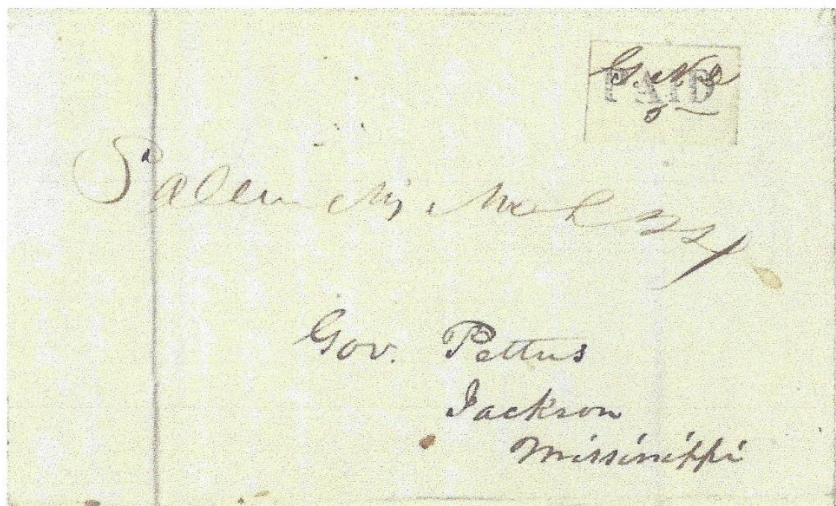 PAID
5
Salem Mi March 22
Gov. Pettus
Jackson
Mississippi